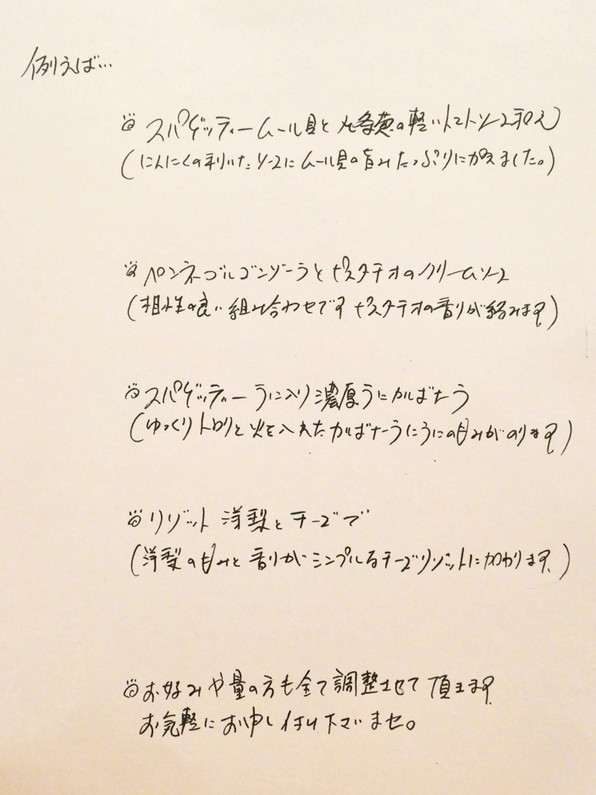 例えば…
スパゲッティー ムール貝と九条葱の軽いトマトソース和え
(にんにくの利いたソースにムール貝の旨みたっぷりにがえました。)
ペンネ ゴルゴンゾーラとピスタチオのクリームソース
(相性の良い組み合わせです ピスタチオの香りが絡みます)
スパゲッティー うに入り濃厚うにカルボナーラ
(ゆっくりトロリと火を入れたカルボナーラにうにの甘みがのります)
リゾット 洋梨とチーズで
(洋梨の甘みと香りがシンプルなチーズリゾットに加わります)
お好みや量の方も全て調整させて頂きます
お気軽にお申し付け下さいませ。